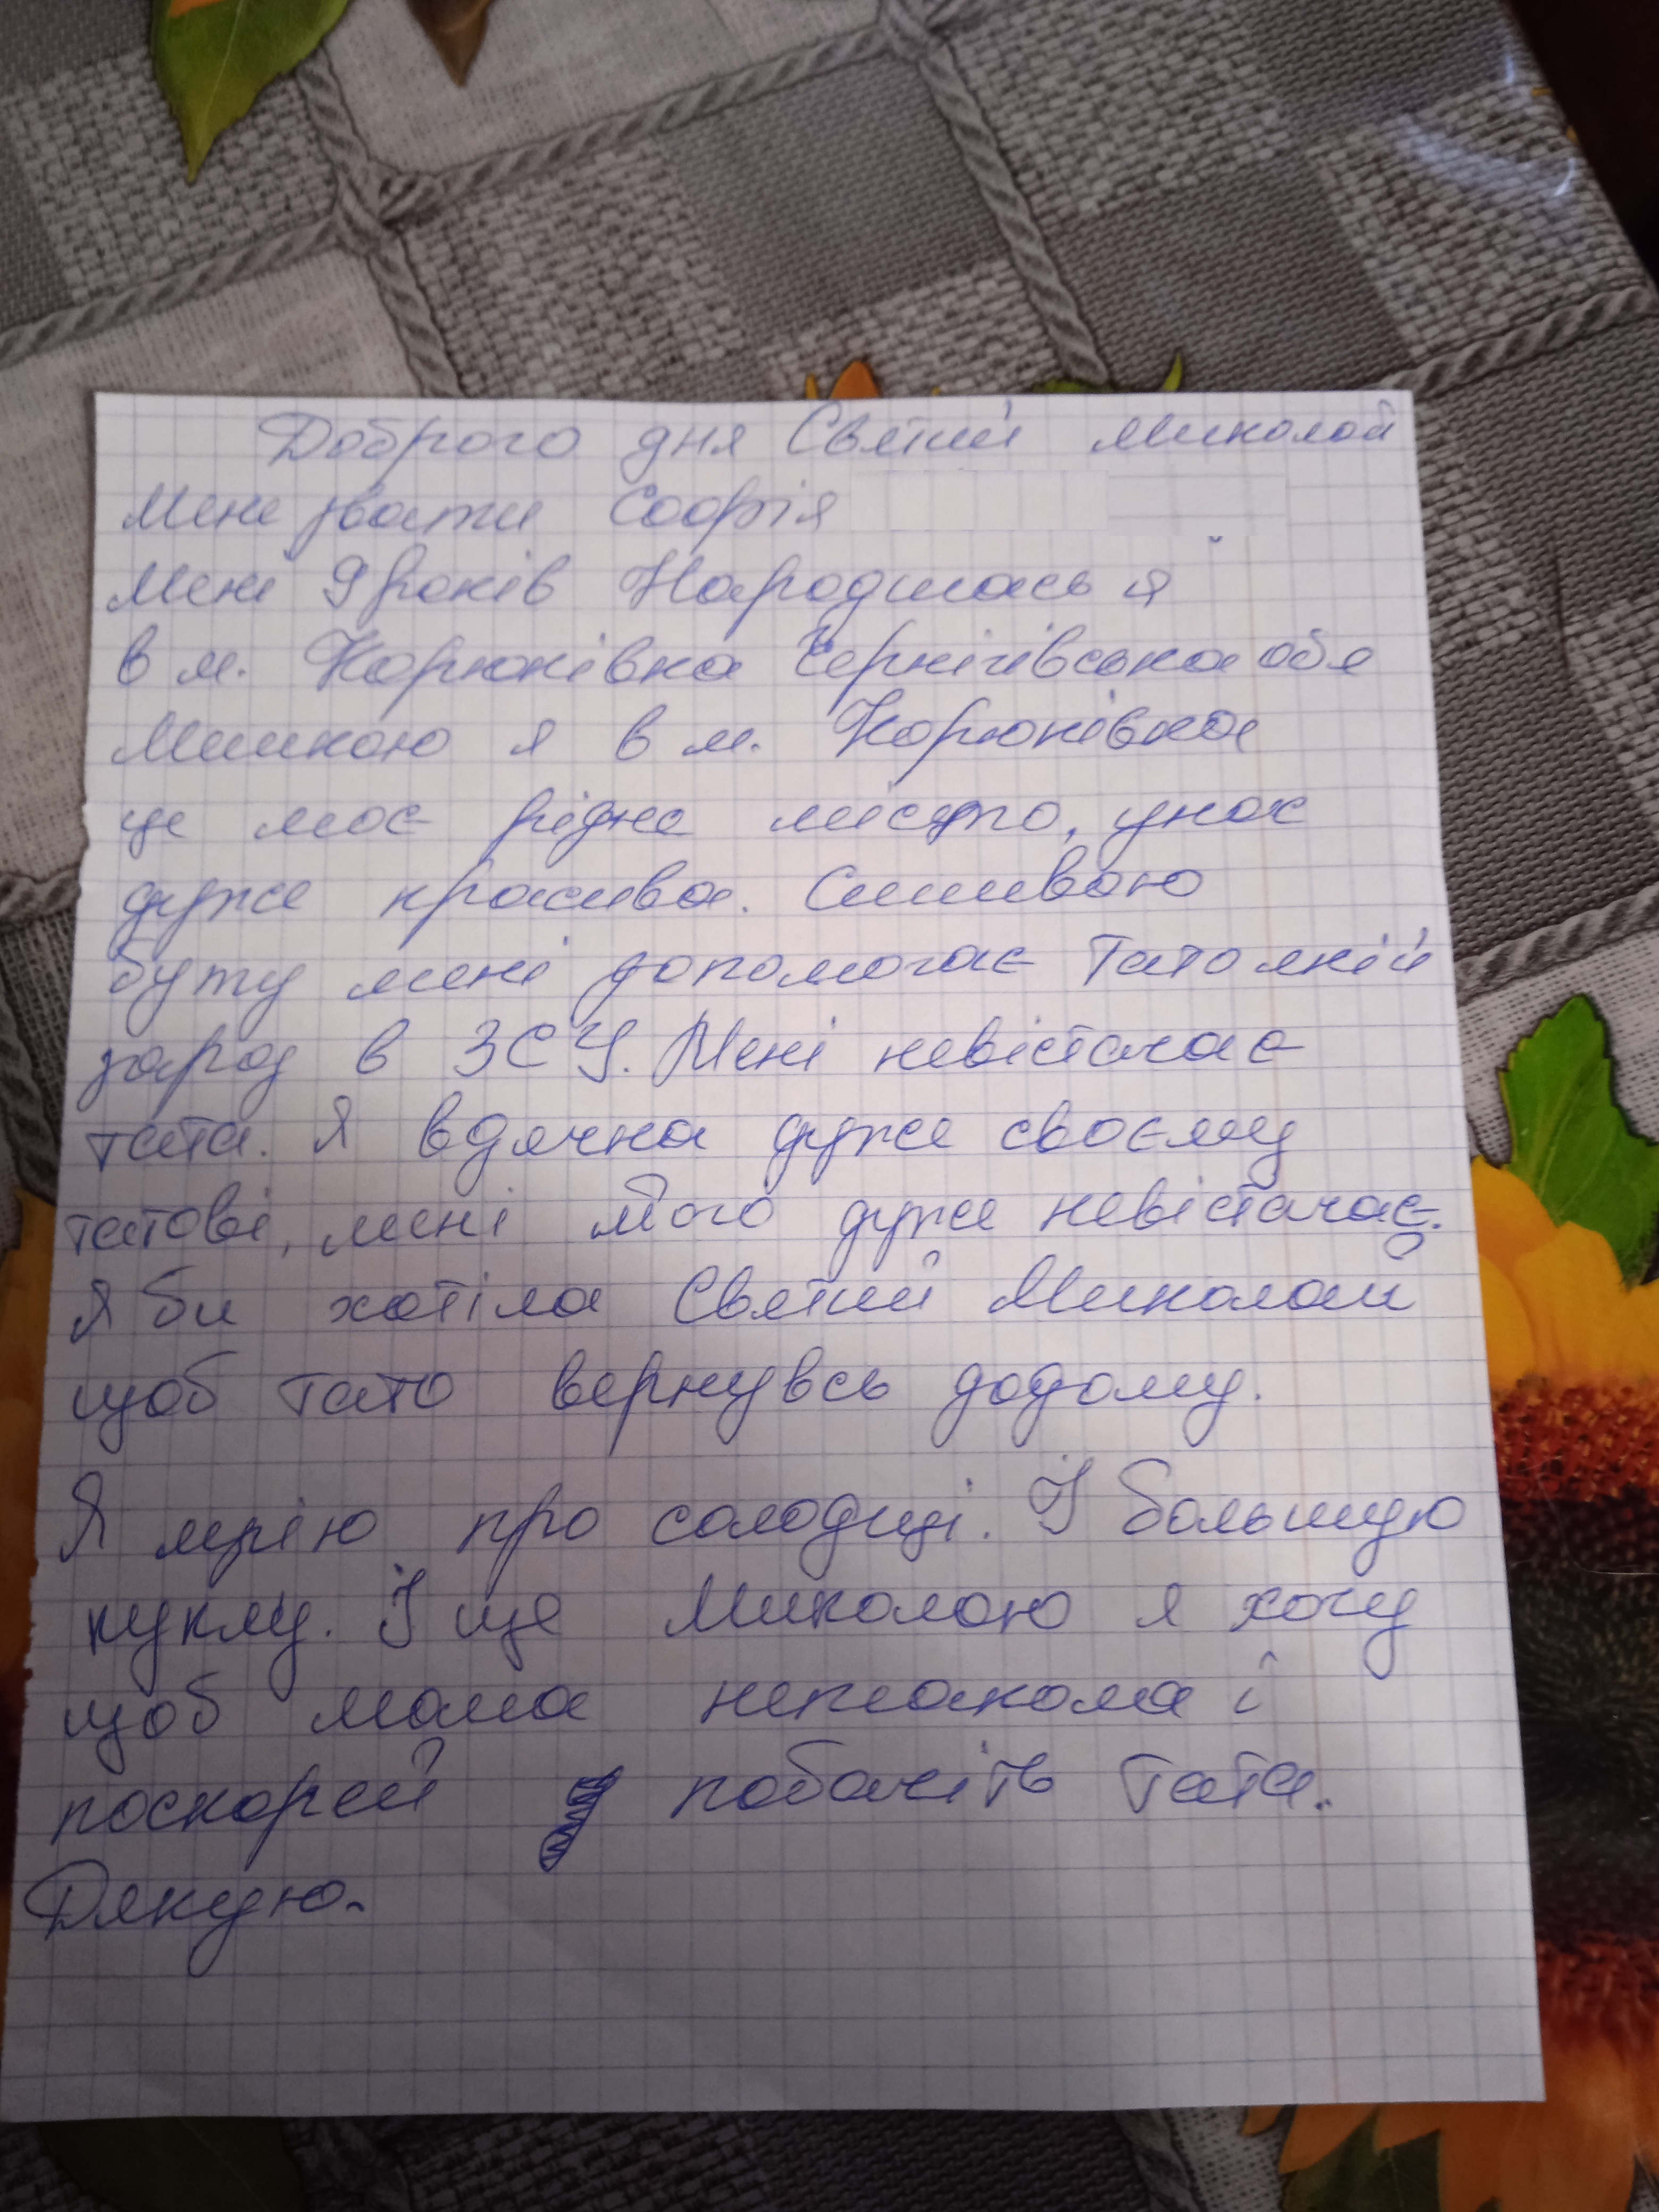 Доброго дня Святий Миколай
Мене звати Софія
Мені 9 років Народилась я
в м. Корюківка Чернігівська обл
Мешкаю я в м. Корюківка
це моє рідне місто,
дуже красива.
буту мені допомогає тато який
зараз в ЗСУ. Мені невістачає
тата. Я вдячна дуже своєму
татові, мені його дуже невістачає.
Я би хотіла Святий Миколай
щоб тато вернувсь додому.
Я мрію про солодщі. І большую
куклу. І ще Миколаю я хочу
щоб мама неплакала і
поскорей побачіть тата.
Дякую.